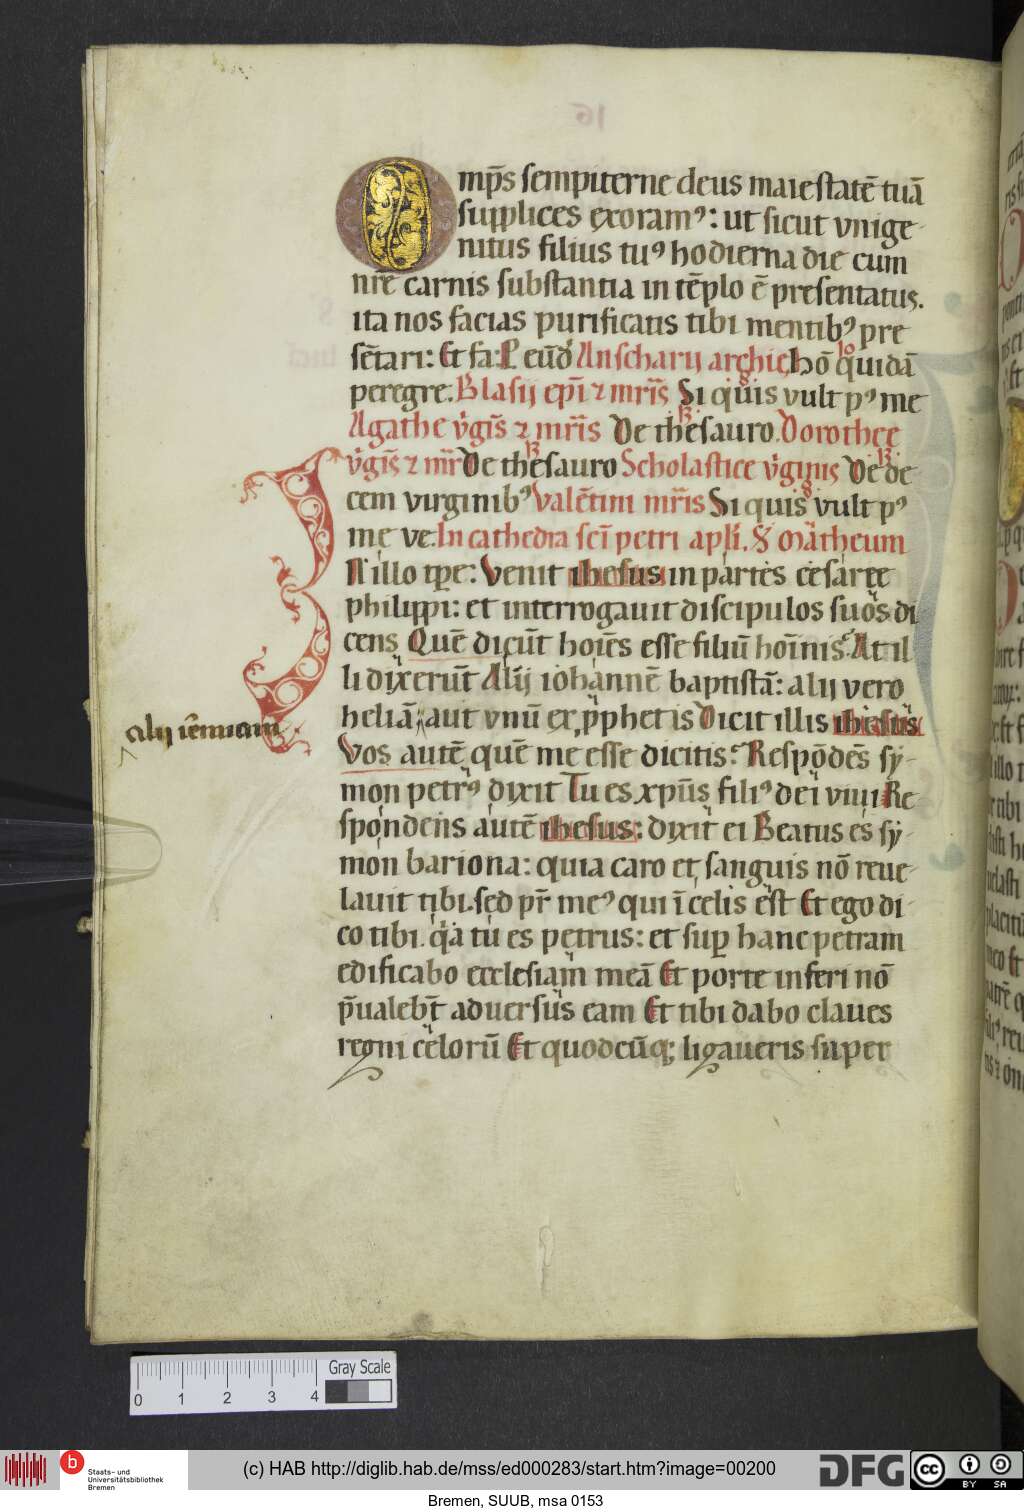 Omp̄s sempiterne deus maiestatē tuā
supplices exoramꝰ: ut sicut vnige-
nitus filius tuꝰ hodierna die cum
nr̄e carnis substantia in tēplo ē presentatus.
ita nos facias purificatis tibi mentibꝰ pre
sētari: Et fa: eūd Anscharij archiep̄i hō quidā
peregre. Blasij ep̄i ⁊ mr̄is Si quis vult pꝰ me
Agathe v̄gīs ⁊ mr̄is De thesauro. Dorothee
v̄gīs ⁊ mr̄ De thesauro Scholastice v̄ginis De de
cem virginibꝰ Valētini mr̄is Si quis vult pꝰ
me ve. In cathedra sc̄i petri apl̄i. S Matheum
In illo tp̄e: Venit ihesus in partes cesaree
philippi: et interrogauit discipulos suos di
cens Quē dicūt hoīes esse filiū hoīnis. At il-
li dixerūt Alij iohannē baptistā: alij vero
heliā aut vnū ex pphetis Dicit illis ihesus
alij iēremiam
Vos autē quē me esse dicitis. Respōdēs sy-
mon petrꝰ dixit Tu es xp̄us filiꝰ dei viui Re-
spondens autē ihesus: dixit ei Beatus es sy-
mon bariona: quia caro et sanguis nō reue-
lauit tibi. sed pr̄ meꝰ qui ī celis est Et ego di-
co tibi. q̄a tu es petrus: et suꝑ hanc petram
edificabo ecclesiam meā Et porte inferi nō
p̄ualebt̄ aduersus eam Et tibi dabo claues
regni celorū Et quodcūq; ligaueris super
Gray Scale
0 1 2 3 4
b Staats- und
Universitätsbibliothek
Bremen
(c) HAB http://diglib.hab.de/mss/ed000283/start.htm?image=00200
DFG
cc BY SA
Bremen, SUUB, msa 0153